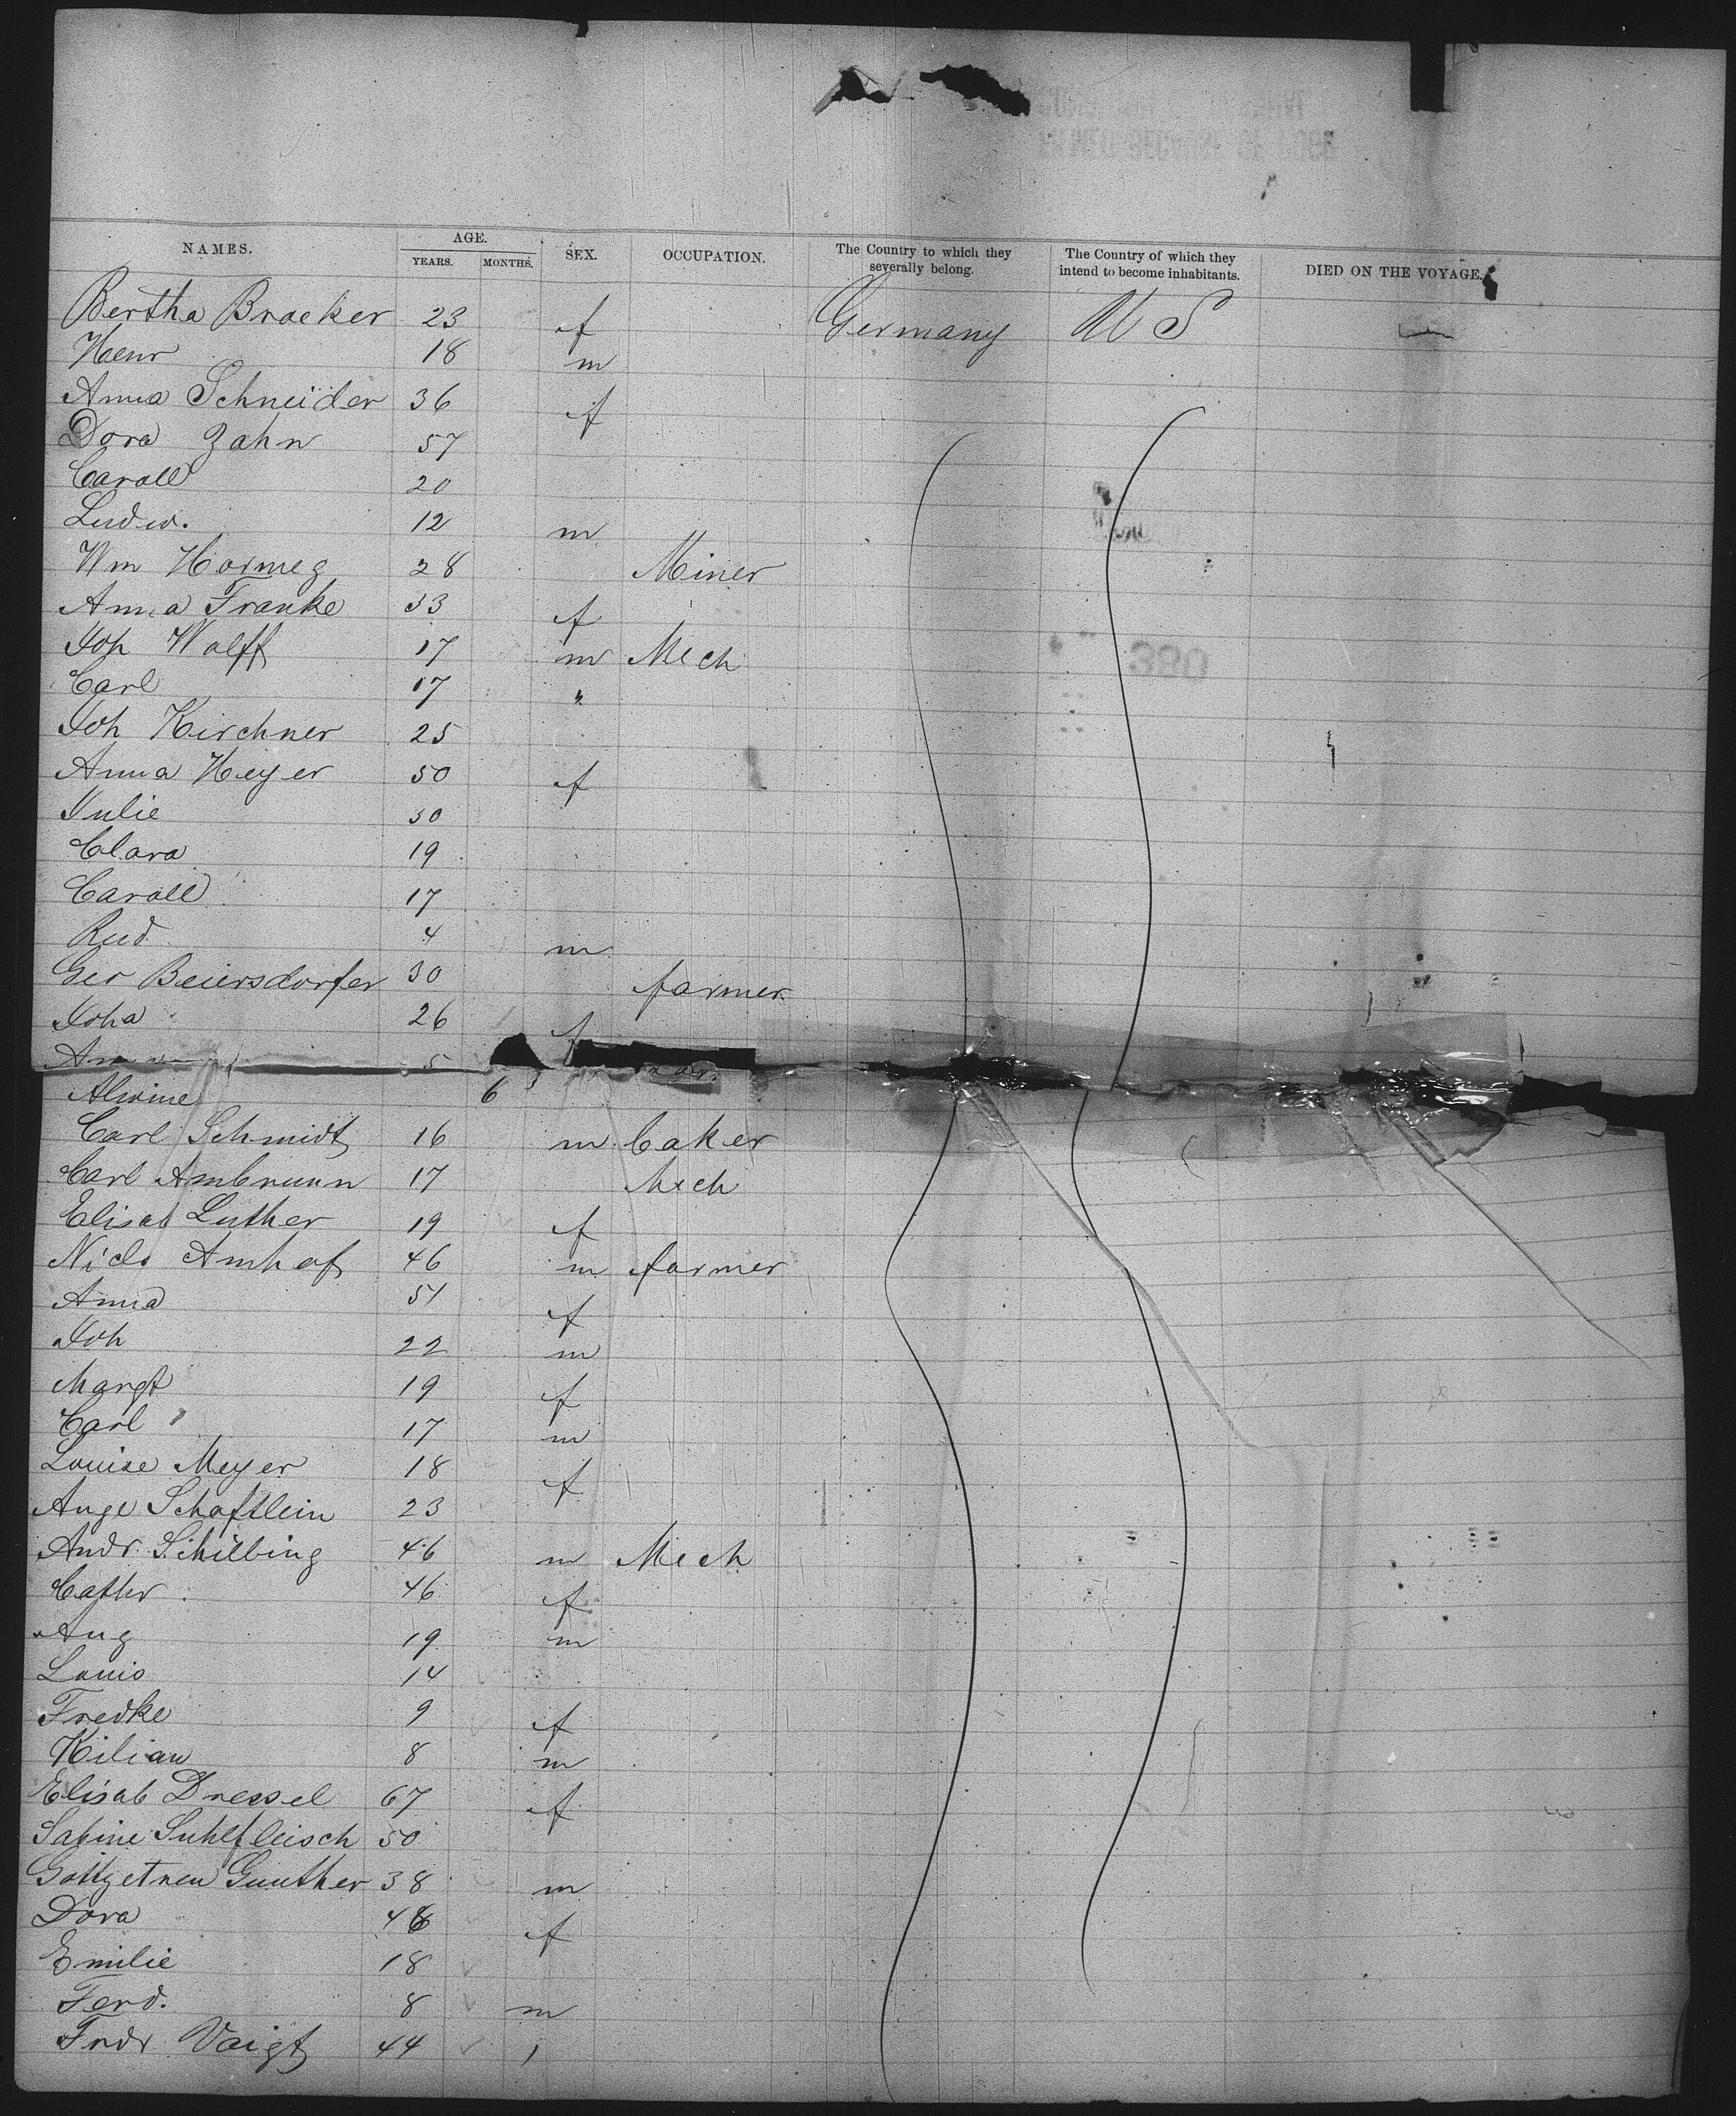 NAMES. AGE. SEX. OCCUPATION. The Country to which they severally belong. The Country of which they intend to become inhabitants. DIED ON THE VOYAGE.
YEARS. MONTHS.
Bertha Braeker 23 f Germany U S
Henr 18 m
Anna Schneider 36 f
Dora Zahn 57
Caroll 20
Ludw. 12 m
Wm Hormeg 28 Miner
Anna Franke 33 f
Joh Wolff 17 m Mech
Carl 17 "
Joh Kirchner 25
Anna Heyer 50 f
Julie 30
Clara 19
Caroll 17
Rud 4 m
Geo Beiersdorfer 30 farmer
Joha 26 f
5
Alwine 6
Carl Schmidt 16 m baker
Carl Ambrunn 17 Mech
Elisab Luther 19 f
Nicls Amhof 46 m farmer
Anna 51 f
Joh 22 m
Margt 19 f
Carl 17 m
Louise Meyer 18 f
Auge Schaftlein 23
Andr. Schilbing 46 m Mech
Cathr. 46 f
Aug 19 m
Louis 14
Fredke 9 f
Kilian 8 m
Elisab Dressel 67 f
Sabine Suhlfleisch 50
Gottgetreu Gunther 38 m
Dora 48 f
Emilie 18
Ferd. 8 m
Fndr Voigt 44
380